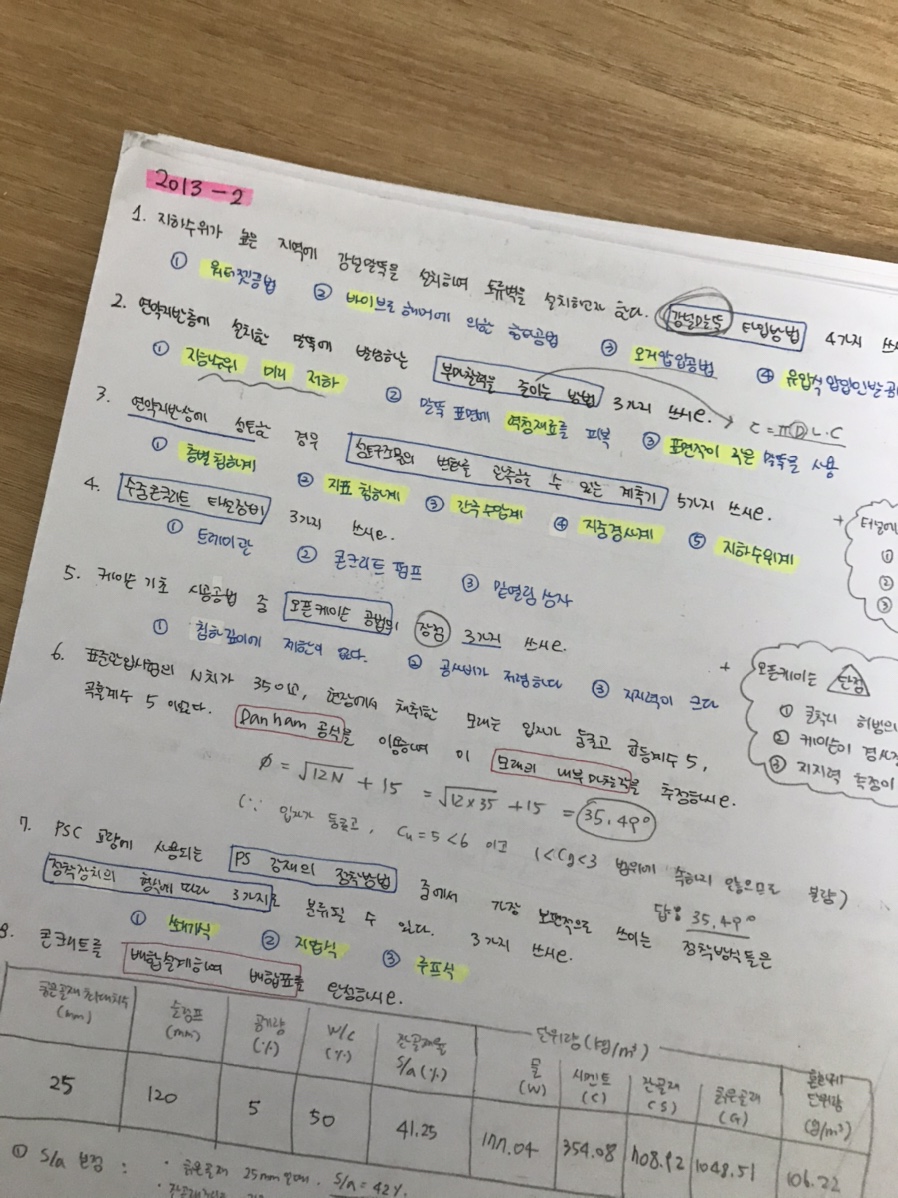 2013-2
1. 지하수위가 높은 지역에 강널말뚝을 설치하여 토류벽을 설치하고자 한다. 강널말뚝 타입방법 4가지 쓰시
① 워터젯공법 ② 바이브로 해머에 의한 항타공법 ③ 오거압입공법 ④ 유압식 압입인발공
2. 연약지반층에 설치한 말뚝에 발생하는 부마찰력을 줄이는 방법 3가지 쓰시오.
① 지하수위 미리 저하 ② 말뚝 표면에 역청재료를 피복 ③ 표면적이 작은 말뚝을 사용
C = πDL·C
3. 연약지반상에 성토한 경우 성토구조물의 변화를 관측할 수 있는 계측기 5가지 쓰시오.
① 층별침하계 ② 지표침하계 ③ 간극수압계 ④ 지중경사계 ⑤ 지하수위계
4. 수중콘크리트 타설장비 3가지 쓰시오.
① 트레미관 ② 콘크리트 펌프 ③ 밑열림상자
+ 터널에
①
②
③
5. 케이슨 기초 시공공법 중 오픈케이슨 공법의 장점 3가지 쓰시오.
① 침하깊이에 제한이 없다. ② 공사비가 저렴하다 ③ 지지력이 크다
+ 오픈케이슨 단점
① 굴착시 히빙의
② 케이슨이 경사
③ 지지력 측정이
6. 표준관입시험의 N치가 35이고, 현장에서 채취한 모래는 입자가 둥글고 균등계수 5,
곡률계수 5 이었다. Danham 공식을 이용하여 이 모래의 내부마찰각을 추정하시오.
ø = √12N + 15 = √12×35 + 15 = 35.49°
(∵ 입자가 둥글고, Cu=5<6 이고 1<Cg<3 범위에 속하지 않으므로 불량)
답: 35.49°
7. PSC 교량에 사용되는 PS 강재의 정착방법 중에서 가장 보편적으로 쓰이는 정착방식들은
정착장치의 형식에 따라 3가지로 분류될 수 있다. 3가지 쓰시오.
① 쐐기식 ② 지압식 ③ 루프식
8. 콘크리트를 배합설계하여 배합표를 완성하시오.
굵은골재 최대치수 (mm) 슬럼프 (mm) 공기량 (%) W/C (%) 잔골재율 S/a (%) 단위량 (kg/m³)
물 (W) 시멘트 (C) 잔골재 (S) 굵은골재 (G) 혼화제 단위량 (g/m³)
25 120 5 50 41.25 177.04 354.08 708.92 1048.51 106.22
① S/a 보정 : · 굵은골재 25mm 일때. S/a = 42%.